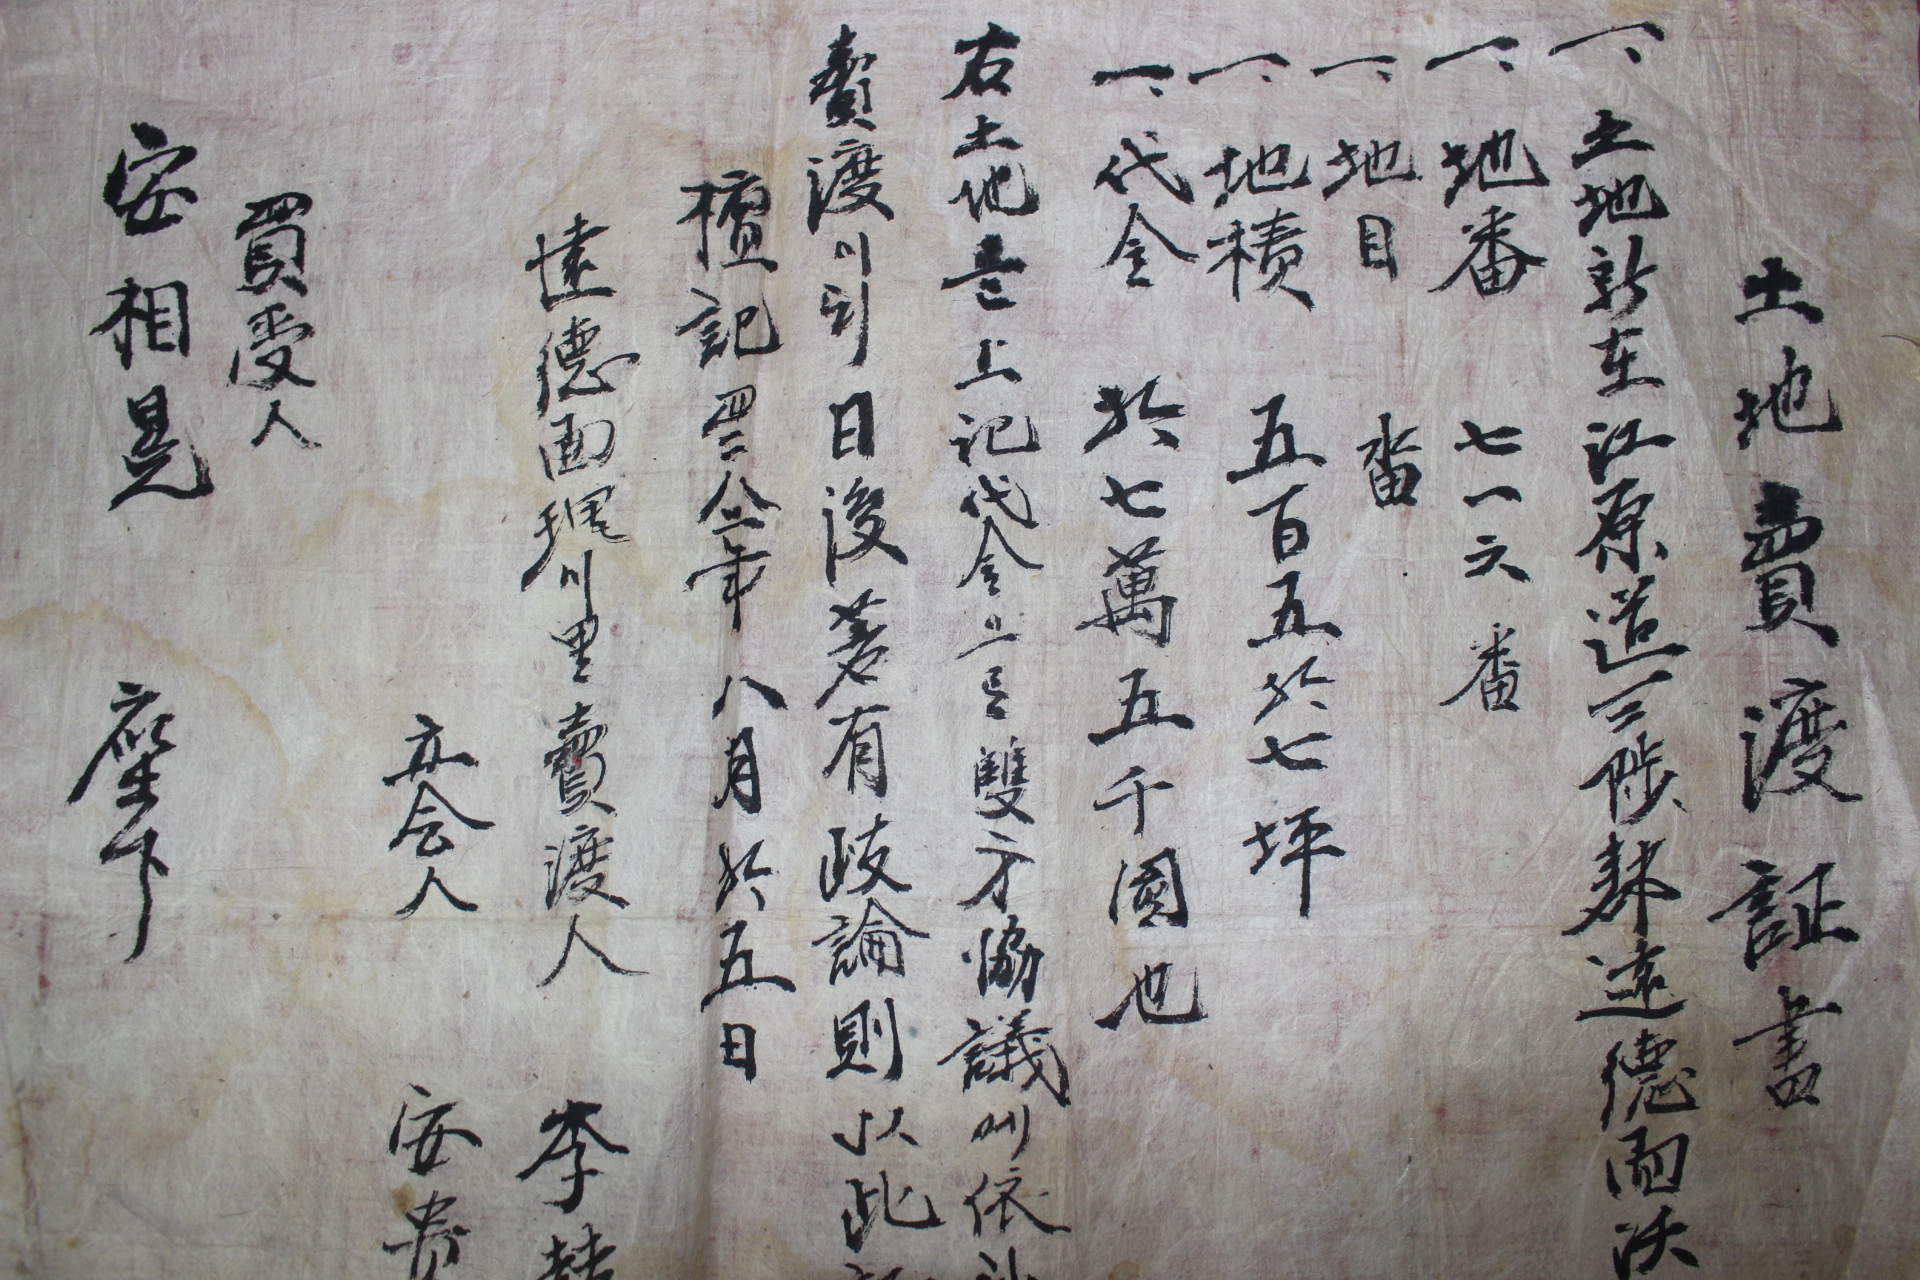 土地賣渡証書
一、土地所在江原道三陟郡遠德面沃
一、地番 七一六番
一、地目 畓
一、地積 五百五拾七坪
一、代金 拾七萬五千圜也
右土地를上記代金으로雙方協議 依
賣渡 日後若有歧論則以此
檀記四二八 年八月拾五日
遠德面 川里賣渡人 李
立会人 安貴
買受人
安相晃 座下